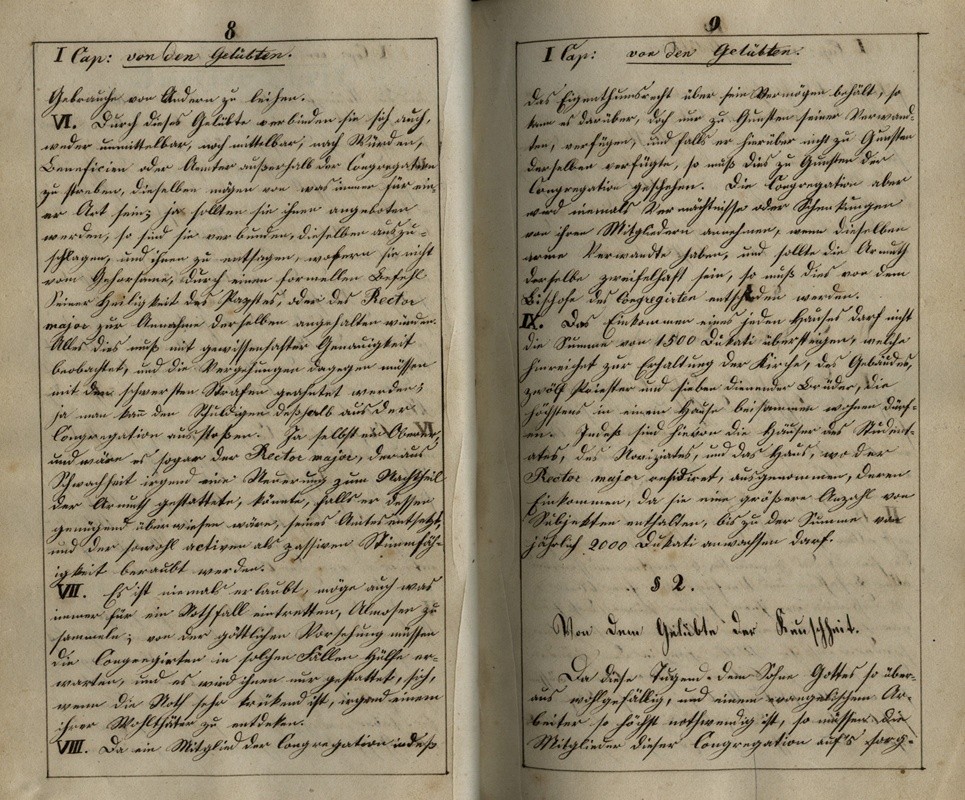 8
I Cap: von den Gelübten.
Gebrauche von Andern zu leihen.
VI. Durch dieses Gelübte verbinden sie sich auch,
weder unmittelbar, noch mittelbar, nach Würden,
Beneficien oder Aemter außerhalb der Congregation
zu streben, dieselben mögen von was immer für ein-
er Art sein; ja sollten sie ihnen angeboten
werden, so sind sie verbunden, dieselben auszu-
schlagen, und ihnen zu entsagen, wofern sie nicht
vom Gehorsame, durch einen formellen Befehl
Seiner Heiligkeit des Papstes, oder des Rector
major zur Annahme derselben angehalten würden.
Alles dies muß mit gewissenhafter Genauigkeit
beobachtet, und die Vergehungen dagegen müssen
mit den schwersten Strafen geahntet werden;
ja man kann den Schuldigen deßhalb aus der
Congregation ausstoßen. Ja selbst ein Oberer,
und wäre es sogar der Rector major, der aus
Schwachheit irgend eine Neuerung zum Nachtheil
der Armuth gestattete, könnte, falls er dessen
genügend überwiesen wäre, seines Amtes entsetzt,
und der sowohl activen als passiven Stimmfäh-
igkeit beraubt werden.
VII. Es ist niemals erlaubt, möge auch was
immer für ein Nothfall eintretten, Almosen zu
sammeln; von der göttlichen Vorsehung müssen
die Congregirten in solchen Fällen Hülfe er-
warten, und es wird ihnen nur gestattet, sich,
wenn die Noth sehr drükend ist, irgend einem
ihrer Wohlthäter zu entdeken.
VIII. Da ein Mitglied der Congregation indeß
9
I Cap: von den Gelübten.
das Eigenthumsrecht über sein Vermögen behält, so
kann es darüber, doch nur zu Gunsten seiner Verwand-
ten, verfügen, und falls er hierüber nicht zu Gunsten
derselben verfügte, so muß dies zu Gunsten der
Congregation geschehen. Die Congregation aber
wird niemals Vermächtnisse oder Schenkungen
von ihren Mitgliedern annehmen, wenn dieselben
arme Verwandte haben, und sollte die Armuth
derselbe zweifelhaft sein, so muß dies von dem
Bischofe des Congregirten entschieden werden.
IX. Das Einkommen eines jeden Hauses darf nicht
die Summe von 1500 Dukati übersteigen, welche
hinreichet zur Erhaltung der Kirche, des Gebäudes,
zwölf Priester und sieben dienender Brüder, die
höchstens in einem Hause beisammen wohnen dürf-
en. Indeß sind hievon die Häuser des Student-
ates, des Noviziates, und das Haus, wo der
Rector major residiret, ausgenommen, deren
Einkommen, da sie eine größere Anzahl von
Subjekten enthalten, bis zu der Summe von
jährlich 2000 Dukati anwachsen darf.
§ 2.
Von dem Gelübte der Keuschheit.
Da diese Tugend dem Sohne Gottes so über-
aus wohlgefällig, und einem evangelischem Ar-
beiter so höchst nothwendig ist, so müssen die
Mitglieder dieser Congregation auf's sorg-